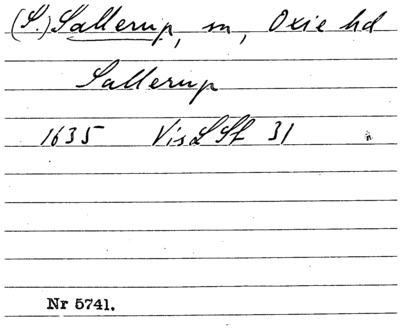 (S.) Sallerup, sn, Oxie hd
Sallerup
1635 Vis L Sk 31
Nr 5741.